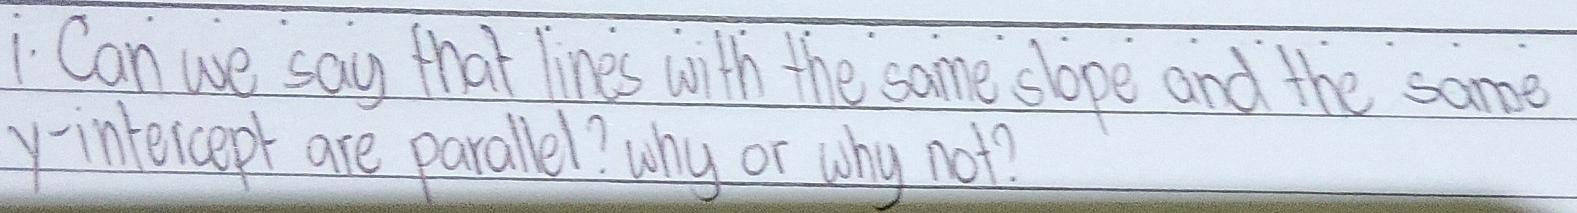 1. Can we say that lines with the same slope and the same
y-intercept are parallel? why or why not?